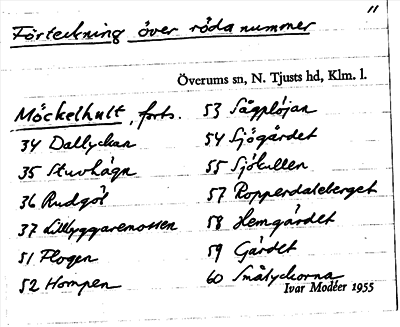 11
Förteckning över röda nummer
Överums sn, N. Tjusts hd, Klm. l.
Möckelhult, forts.
34 Dallyckan
35 Stuvhägn
36 Rudgöl
37 Lillbyggaremossen
51 Plogen
52 Hompen
53 Sågplöjan
54 Sjögärdet
55 Sjökullen
57 Kopperdalsberget
58 Hemgärdet
59 Gärdet
60 Smålyckorna
Ivar Modéer 1955